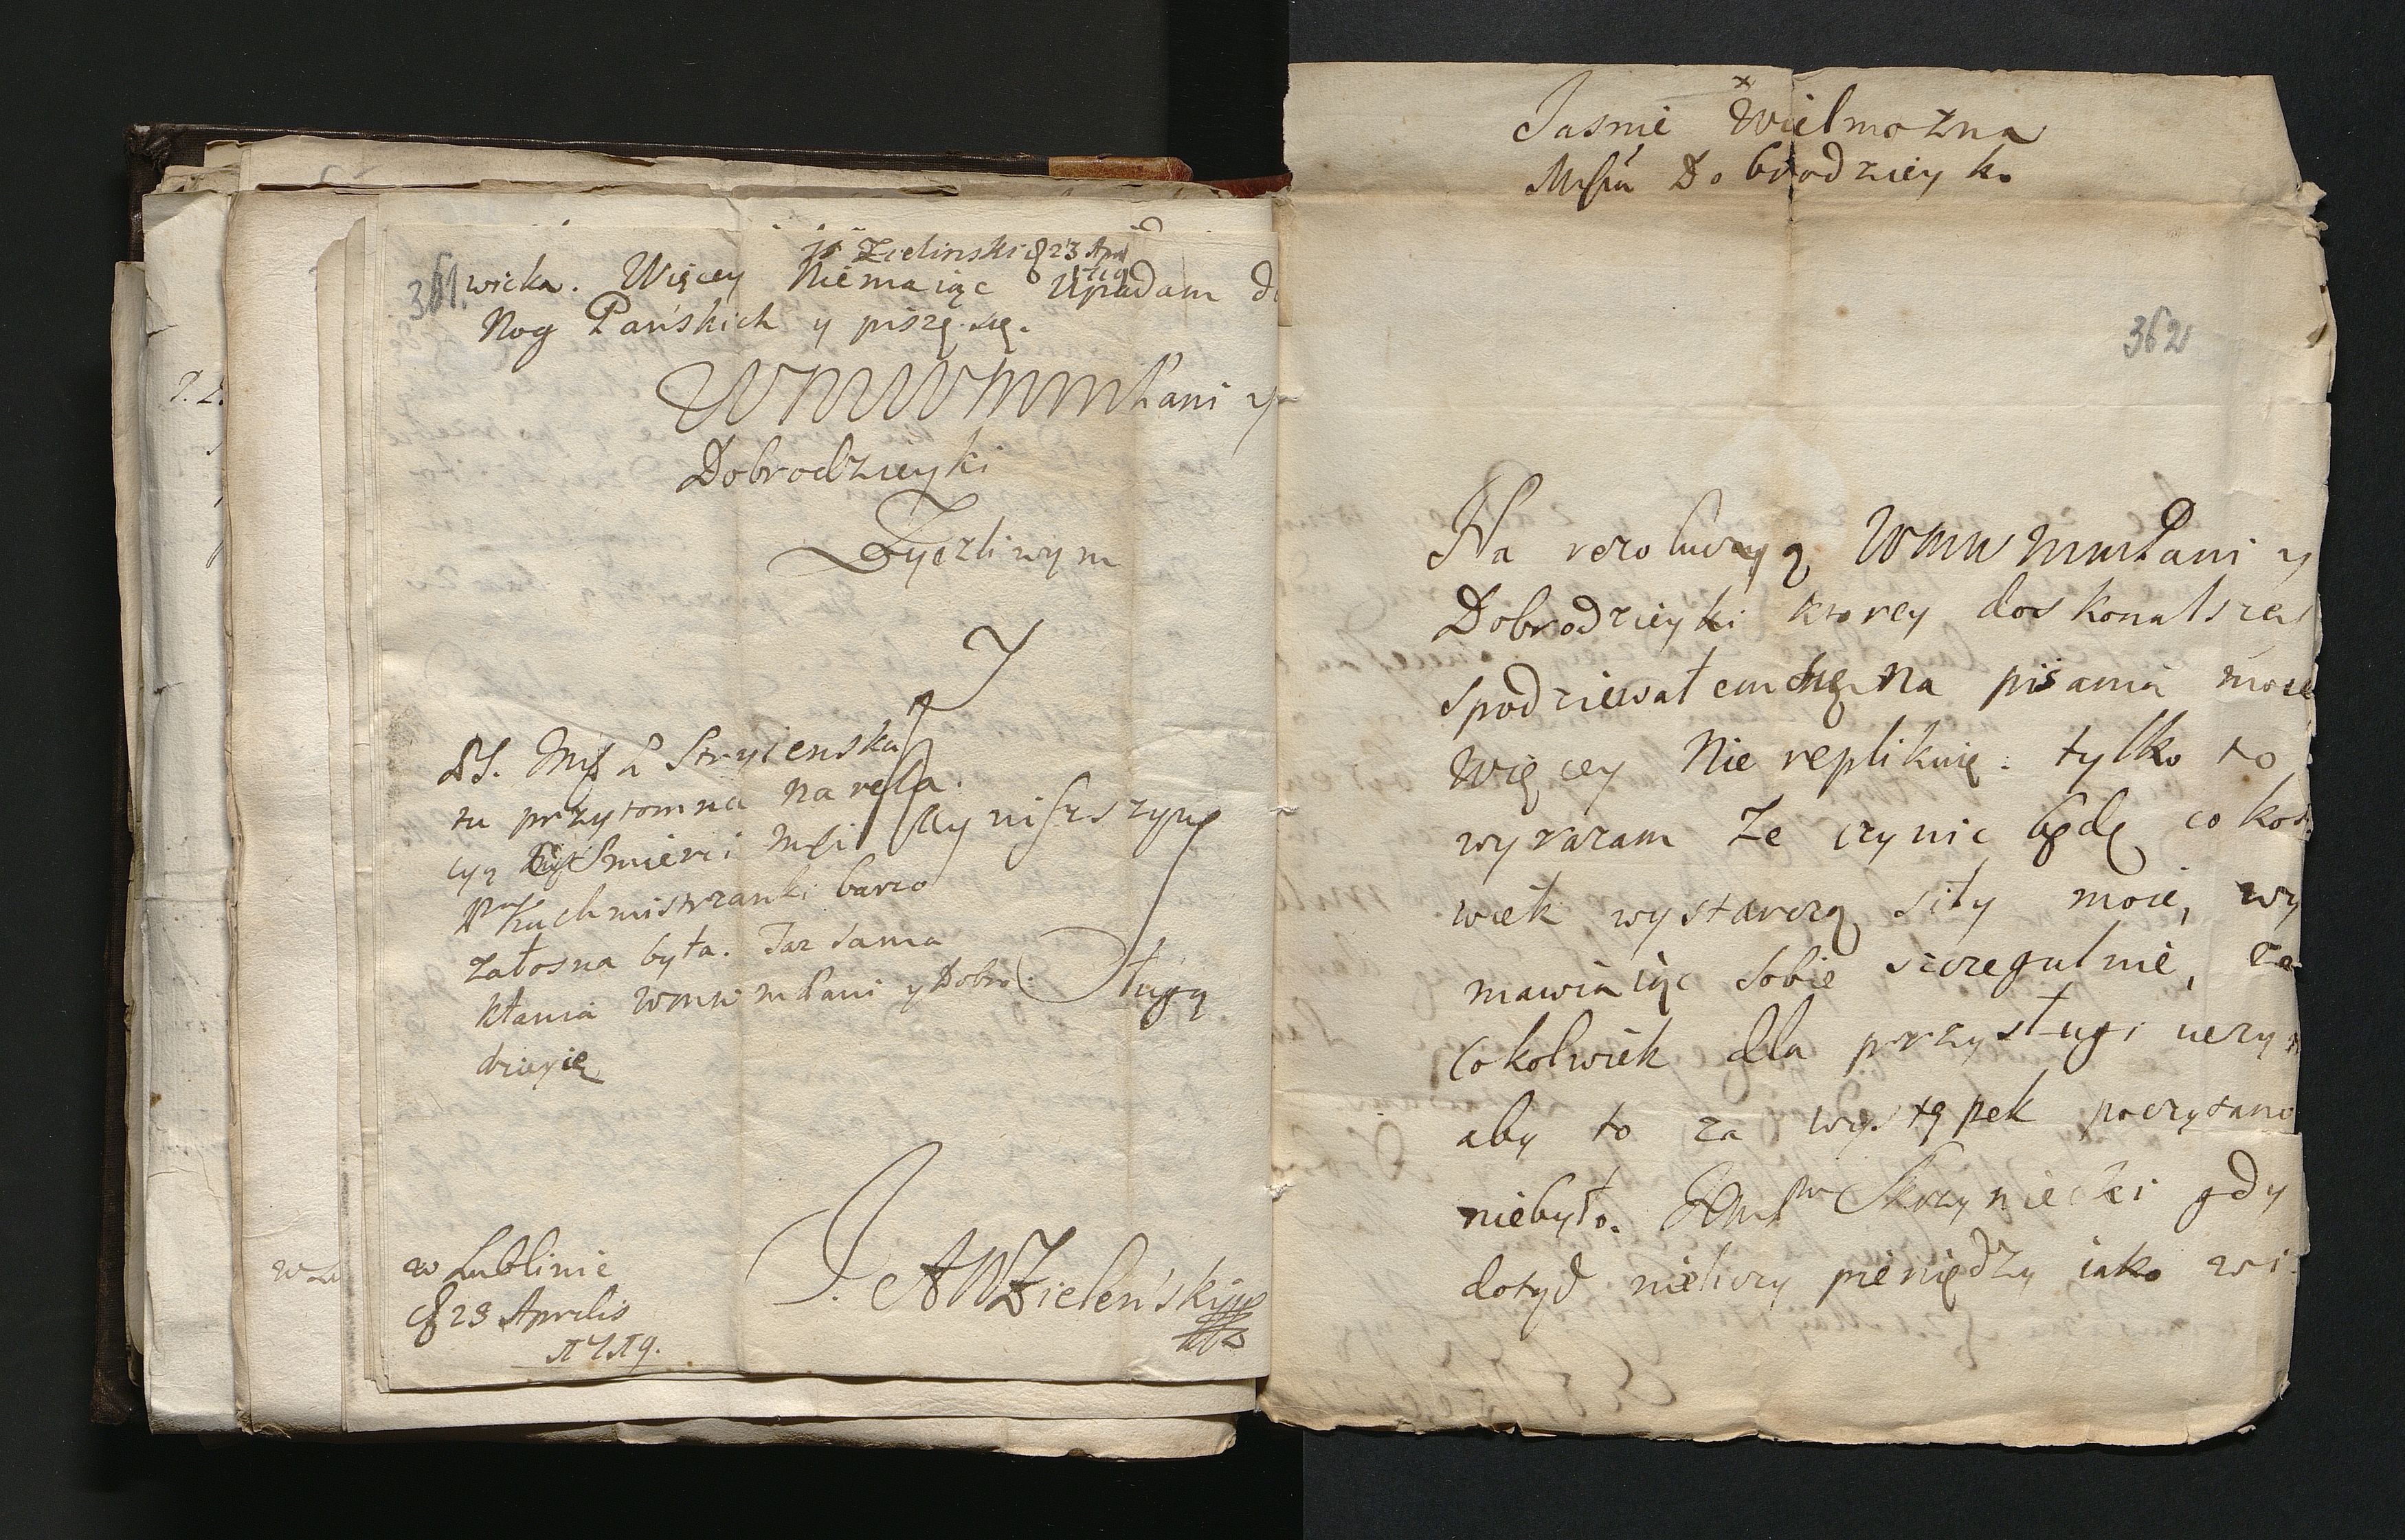 Zielinski 23 Apri
361.
wicka. Więcey Niemaiąc Upadam d
Nog Pańskich y piszę się.
WMWMMPani y
Dobrodzieyki
Zyczliwym
Y
PS. P Stryienska
tu przytomna na rela.
cyą Smierci
Kuchmistrzanki barzo
załosna była. Taz sama
kłania WMWMPani y Dobro
dzieyię
Naynizszym
Sługą
w Lublinie
23 Aprilis
1719.
J. A W Zieleńskymp
Jasnie Wielmozna
Dobrodzieyko
362
Na rezolucyją WMWMMPani y
Dobrodzieyki ktorey doskonalszey
spodziewałem się na pisania moie
Więcey Nie replikuię: tylko to
wyrazam Ze czynic będę co kol
wiek wystarczą siły moie, wy
mawiaiąc sobie szczegulnie, ze
cokolwiek dla przysługi uczyn
aby to za występek poczytano
niebyło. Skrzyniecki gdy
dotyd nieliczy pieniędzy iako wi